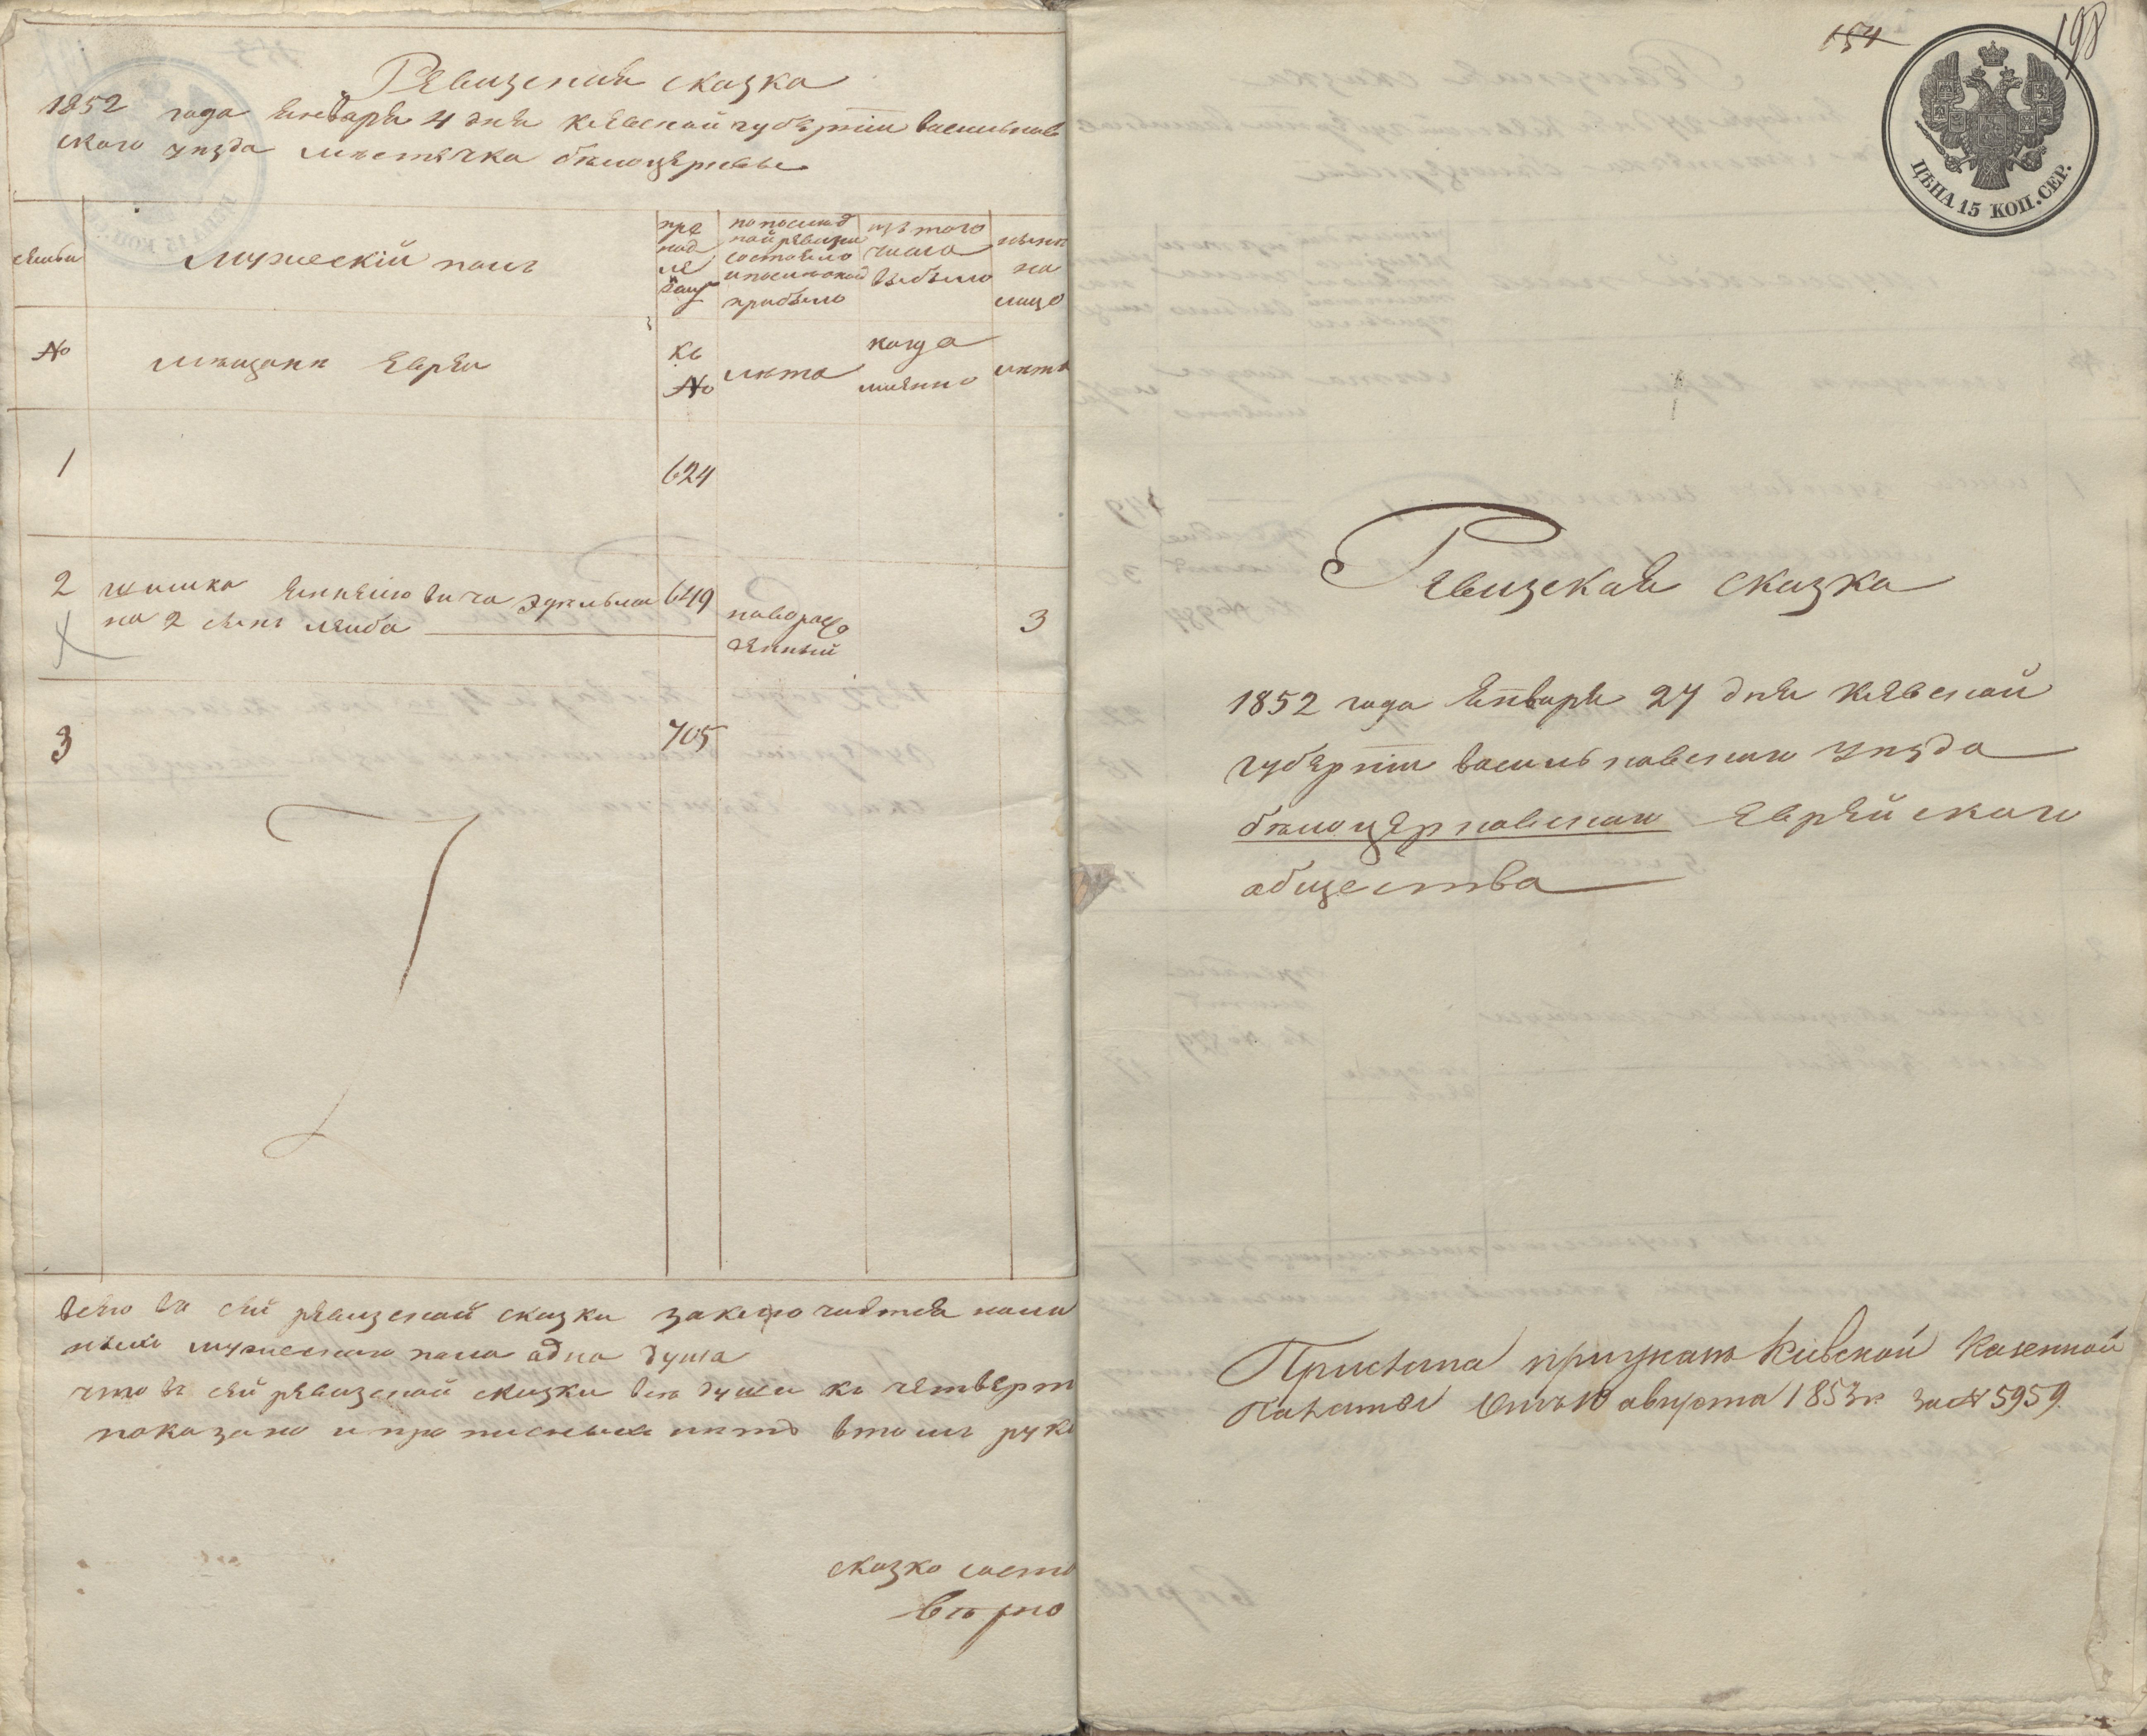 Ревизская сказка
1852 года Января 4 дня Киевской губернии васильков
ского уезда местечка белоцеркви
семьи
мужескій полъ
пре
над
ле
жащ
по послед
ней ревизии
состояло
и после оной
прибыло
изъ того
числа
выбыло
ныне
на
лицо
№
мещане Евреи
къ
№
лета
когда
имянно
лета
1
624
2
649
на 2 сынъ лейба
новорож
денный
3
3
705
всего въ сей ревизской сказки заключается налич
ныхъ мужеского пола одна душа
что въ сей ревизской сказки все души къ четверт
показано и прописныхъ нетъ втомъ рук
сказко состо
верно
154
198
ЦѢНА 15 КОП. СЕР.
Ревизская сказка
1852 года Января 27 дня Киевской
губерніи васильковского уезда
белоцерковского Еврейского
общества
Прислана приуказъ Киевской Казенной
Палаты Отъ 10 августа 1853 г. за № 5959.